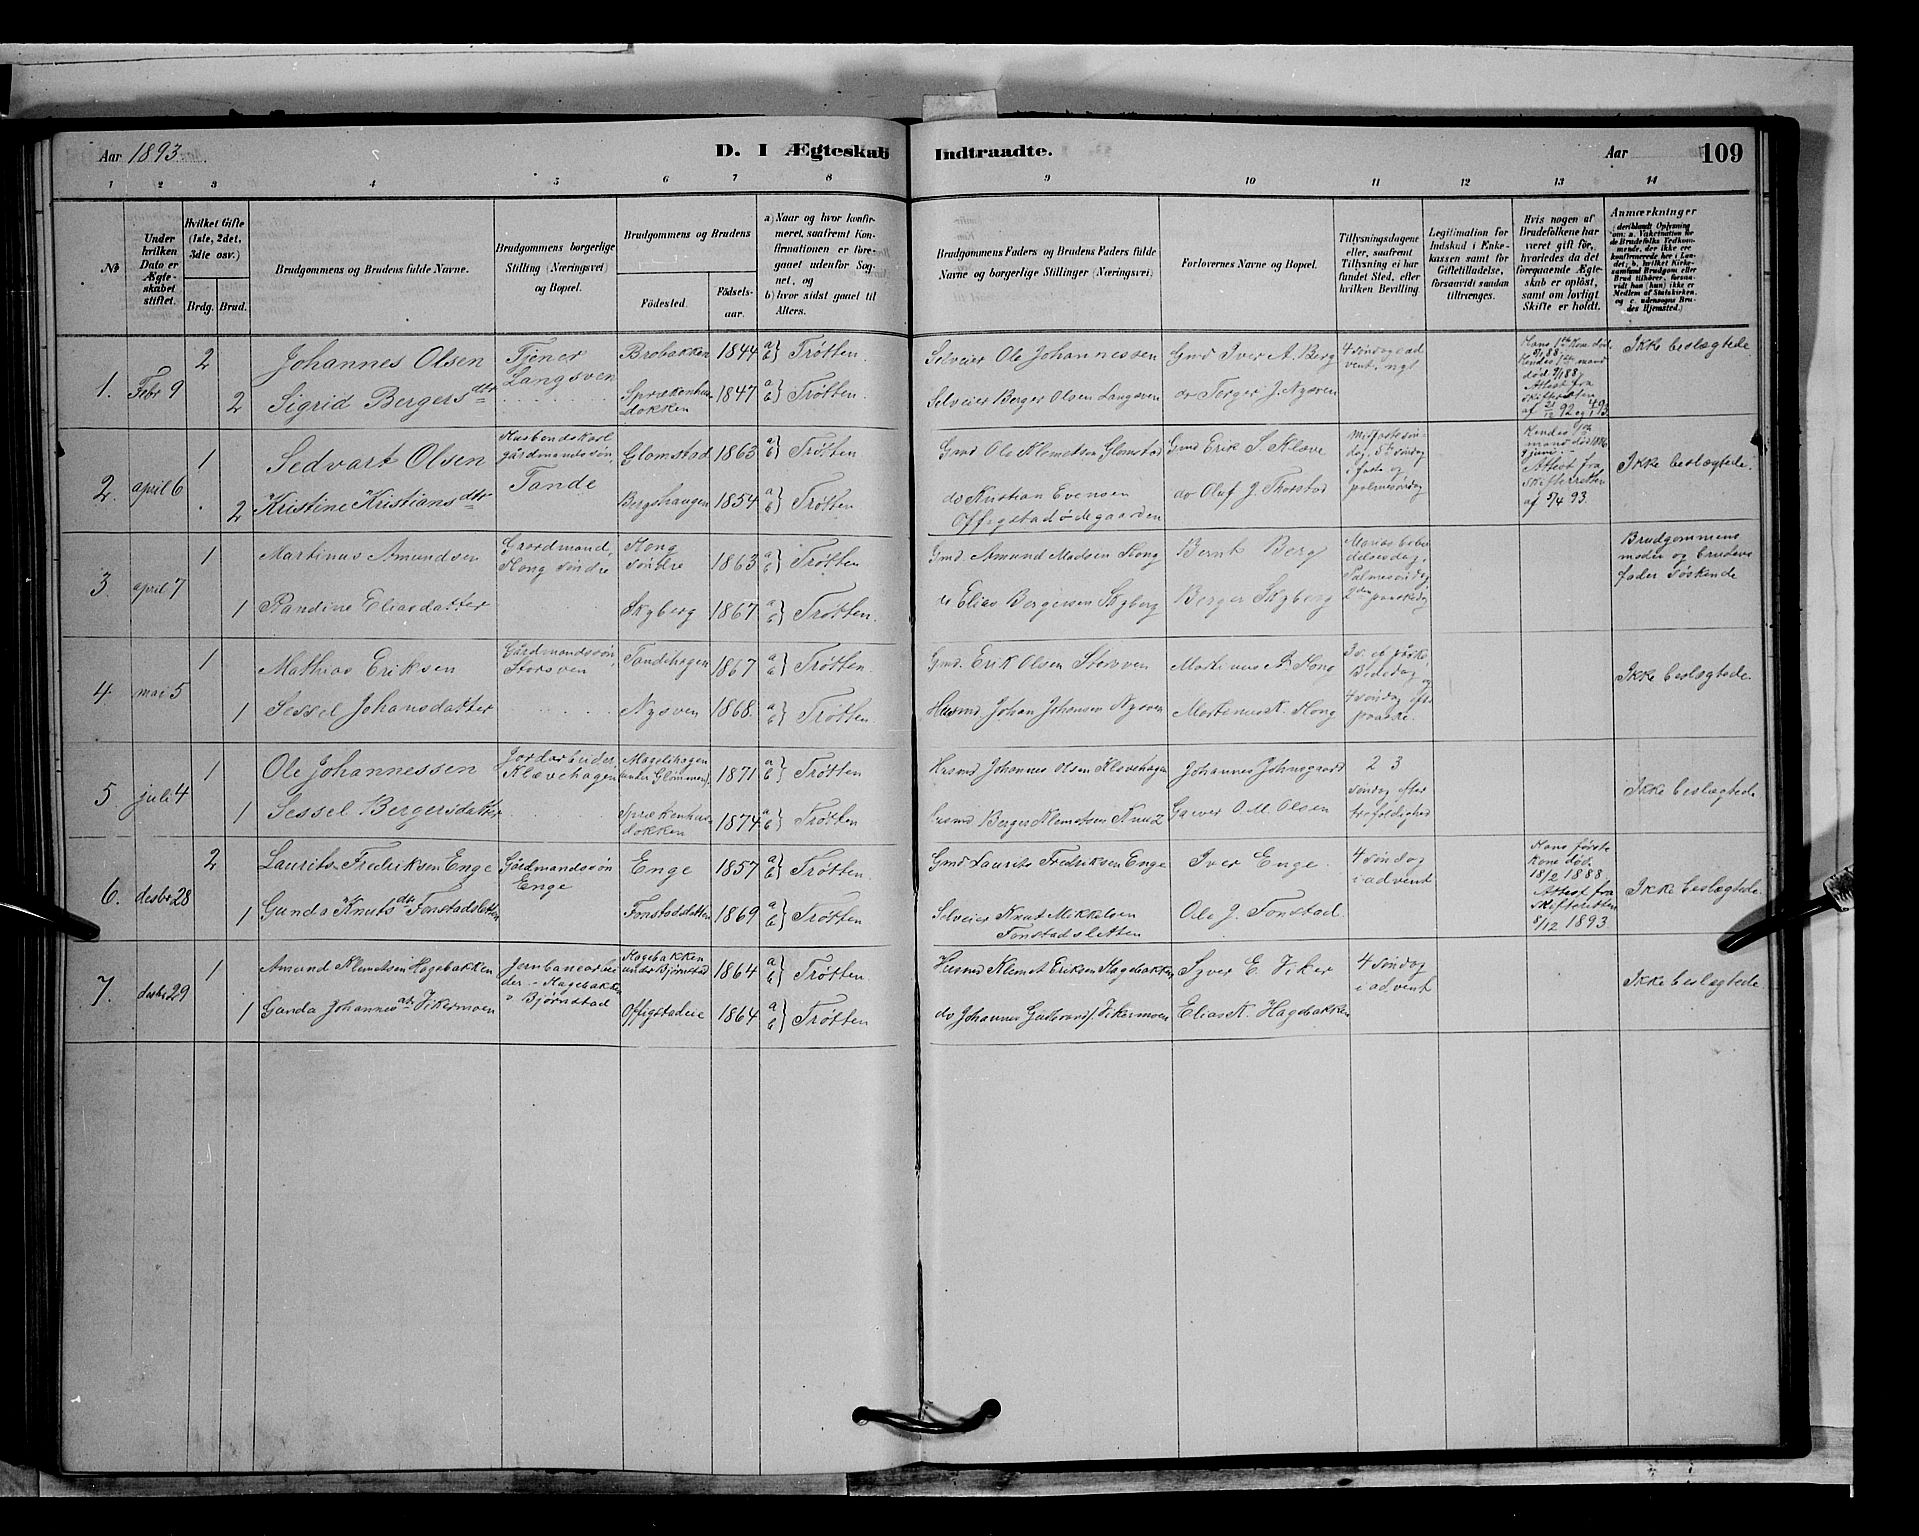 Aar 1893. D. I Ægteskab Indtraadte. Aar 109
1 2 3 4 5 6 7 8 9 10 11 12 13 14
№
Under hvilken Dato er Ægteskabet stiftet.
Hvilket Gifte (1ste, 2det, 3die osv.)
Brdg. Brud.
Brudgommens og Brudens fulde Navne.
Brudgommens borgerlige Stilling (Næringsvei) og Bopæl.
Brudgommens og Brudens
Födested.
Födselsaar.
a) Naar og hvor konfirmeret, saafremt Konfirmationen er foregaaet udenfor Sognet, og
b) hvor sidst gaaet til Alters.
Brudgommens Faders og Brudens Faders fulde Navne og borgerlige Stillinger (Næringsvei)
Forlovernes Navne og Bopæl.
Tillysningsdagene eller, saafremt Tillysning ei har fundet Sted, efter hvilken Bevilling
Legitimation for Indskud i Enkekassen samt for Giftetilladelse, forsaavidt saadan tiltrænges.
Hvis nogen af Brudefolkene har været gift för, hvorledes da det foregaaende Ægteskab er oplöst, samt om lovligt Skifte er holdt.
Anmærkninger
1. Febr 9 2 Johannes Olsen Tjener Langsven Brobakken 1844 a b} Trøtten. Selveier Ole Johannessen Gmd Iver A. Berg 4 søndag i advent, nyt Hans 1ste Kone død 9/1 88. Kendes 1ste mand død 9/1 88 Attest fra skifteretten Ikke beslægtede
2 Sigrid Bergersdtr 1847 a b} Trøtten. Selveier Berger Olsen Langsven do Terger J. Nysven
2. april 6 1 Sedvart Olsen gårdmandssøn, Tande Glomstad 1863 a b} Trøtten Gmd Ole Klemetsen Glomstad Gmd Erik S. Kleve Midfastesøndag, 5te søndag i faste og palmesøndag Attest fra skifteretten af 5/4 93. Ikke beslægtede.
2 Kristine Kristiansdtr Bergshaugen 1854 a b} Trøtten do Kristian Evensen Offigstadødegaarden do Oluf J. Thorstad
3. april 7 1 Martinus Amundsen Gaardmand, Hong søndre Hong søndre 1863 a b} Trøtten Gmd. Amund Madsen Hong Bernt Berg Marias bebudelsesdag, Palmesøndag 2den paaskedag Brudgommens moder og brudens fader søskende
1 Randine Eliasdatter Skyberg 1867 a b} Trøtten. do Elias Bergersen Skyberg Berger Skyberg
4 mai 5 1 Mathias Eriksen Gårdmandssøn, Storsven Tandehagen 1867 a b} Trøtten. Gmd. Erik Olsen Storsven Martinus P. Hong 3 s. ef påske, Bededag og 4 søndag eft paaske. Ikke beslægtede.
1 Sessel Johansdatter Nysven 1868. a b} Trøtten. Husmd. Johan Johansen Nysven Martinus K. Hong
5. juli 4 1 Ole Johannessen Jordarbeider, Klævehagen 1871 a b} Trøtten Husmd Johannes Olsen Klevehagen Johannes 2 3 søndag efter trefoldighed Ikke beslægtede.
1 Sessel Bergersdatter 1874 a b} Trøtten Husmd Berger Klemetsen O. M. Olsen
6. desbr 28 2 Laurits Fredriksen Enge Gårdmandssøn Enge Enge 1857 a b} Trøtten. Gmd Laurits Fredriksen Enge Iver Enge 4 søndag i advent Hans første Kone død 18/2 1888 Attest fra Skifteretten 8/12 1893. Ikke beslægtede.
1 Gunda Knutsdtr Fonstadsletten Fonstadsletten 1869 a b} Trøtten Selveier Knut Mikkelsen Fonstadsletten Ole J. Fonstad.
7. desbr 29 1 Amund Klemetsen Hagebakken Jernbanearbeider, Hagebakken v Bjørnstad Hagebakken under Bjørnstad 1864 a b} Trøtten Husmd Klemet Eriksen Hagebakken Syver E. Viker 4 søndag i advent Ikke beslægtede.
1 Gunda Johannesdtr Vikermoen Offigstadeie 1864 a b} Trøtten do Johannes Gudbrands. Vikermoen Elias K. Hagebakken